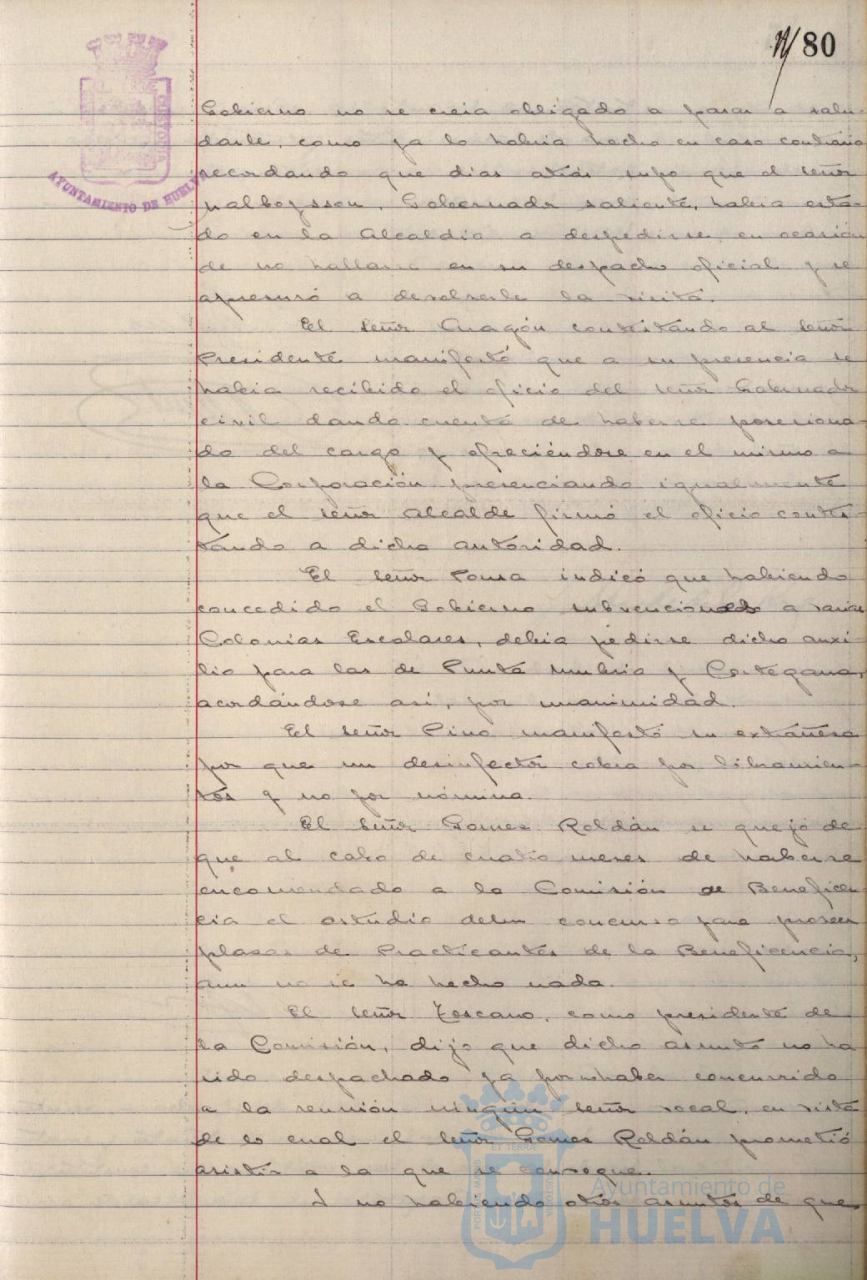 80
AYUNTAMIENTO DE HUELVA
Gobierno no se creia obligado a pasar a salu
darle, como ya lo habria hecho en caso contrario
recordando que dias atrás supo que el señor
Gobernador saliente, habia esta-
do en la Alcaldia a despedirse, en ocasión
de no hallarse en su despacho oficial y se
apresuró a devolverle la visita.
El señor Aragón contestando al señor
Presidente manifestó que a su presencia se
habia recibido el oficio del señor Gobernador
civil dando cuenta de haberse posesiona-
do del cargo y ofreciéndose en el mismo a
la Corporación presenciando igualmente
que el señor Alcalde firmó el oficio contes-
tando a dicha autoridad.
El señor Ponsa indicó que habiendo
concedido el Gobierno subvenciones a varias
Colonias Escolares, debia pedirse dicho auxi-
lio para las de Punta Umbria y Cortegana,
acordándose así, por unanimidad.
El señor Pino manifestó su extrañesa
por que un desinfector cobra por libramien-
tos y no por nómina.
El señor Gomez Roldán se quejó de
que al cabo de cuatro meses de haberse
encomendado a la Comisión de Beneficen
cia el estudio del concurso para proveer
plazas de Practicantes de la Beneficencia,
aun no se ha hecho nada.
El señor Toscano, como presidente de
la Comisión, dijo que dicho asunto no ha
sido despachado ya por no haber concurrido
a la reunión ningún señor vocal, en vista
de lo cual el señor Gomez Roldán prometió
asistir a la que se convoque.
Y no habiendo otros asuntos de que
Ayuntamiento de
HUELVA